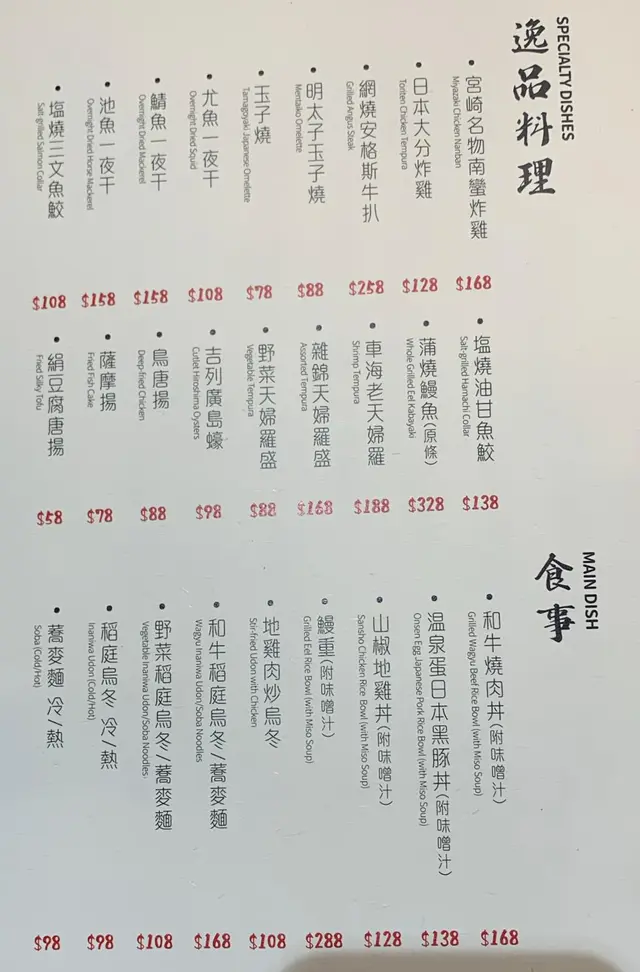 逸品料理
SPECIALTY DISHES
宮崎名物南蠻炸雞
Miyazaki Chicken Nanban
$168
日本大分炸雞
Toriten Chicken Tempura
$128
網燒安格斯牛扒
Grilled Angus Steak
$258
明太子玉子燒
Mentaiko Omelette
$88
玉子燒
Tamagoyaki Japanese Omelette
$78
尤魚一夜干
Overnight Dried Squid
$108
鯖魚一夜干
Overnight Dried Mackerel
$158
池魚一夜干
Overnight Dried Horse Mackerel
$158
塩燒三文魚鮫
Salt-grilled Salmon Collar
$108
塩燒油甘魚鮫
Salt-grilled Hamachi Collar
$138
蒲燒鰻魚(原條)
Whole Grilled Eel Kabayaki
$328
車海老天婦羅
Shrimp Tempura
$188
雜錦天婦羅盛
Assorted Tempura
$168
野菜天婦羅盛
Vegetable Tempura
$88
吉列廣島蠔
Cutlet Hiroshima Oysters
$98
鳥唐揚
Deep-fried Chicken
$88
薩摩揚
Fried Fish Cake
$78
絹豆腐唐揚
Fried Silky Tofu
$58
食事
MAIN DISH
和牛燒肉丼(附味噌汁)
Grilled Wagyu Beef Rice Bowl (with Miso Soup)
$168
温泉蛋日本黑豚丼(附味噌汁)
Onsen Egg Japanese Pork Rice Bowl (with Miso Soup)
$138
山椒地雞丼(附味噌汁)
Sansho Chicken Rice Bowl (with Miso Soup)
$128
鰻重(附味噌汁)
Grilled Eel Rice Bowl (with Miso Soup)
$288
地雞肉炒烏冬
Stir-fried Udon with Chicken
$108
和牛稻庭烏冬/蕎麥麵
Wagyu Inaniwa Udon/Soba Noodles
$168
野菜稻庭烏冬/蕎麥麵
Vegetable Inaniwa Udon/Soba Noodles
$108
稻庭烏冬 冷/熱
Inaniwa Udon (Cold/Hot)
$98
蕎麥麵 冷/熱
Soba (Cold/Hot)
$98